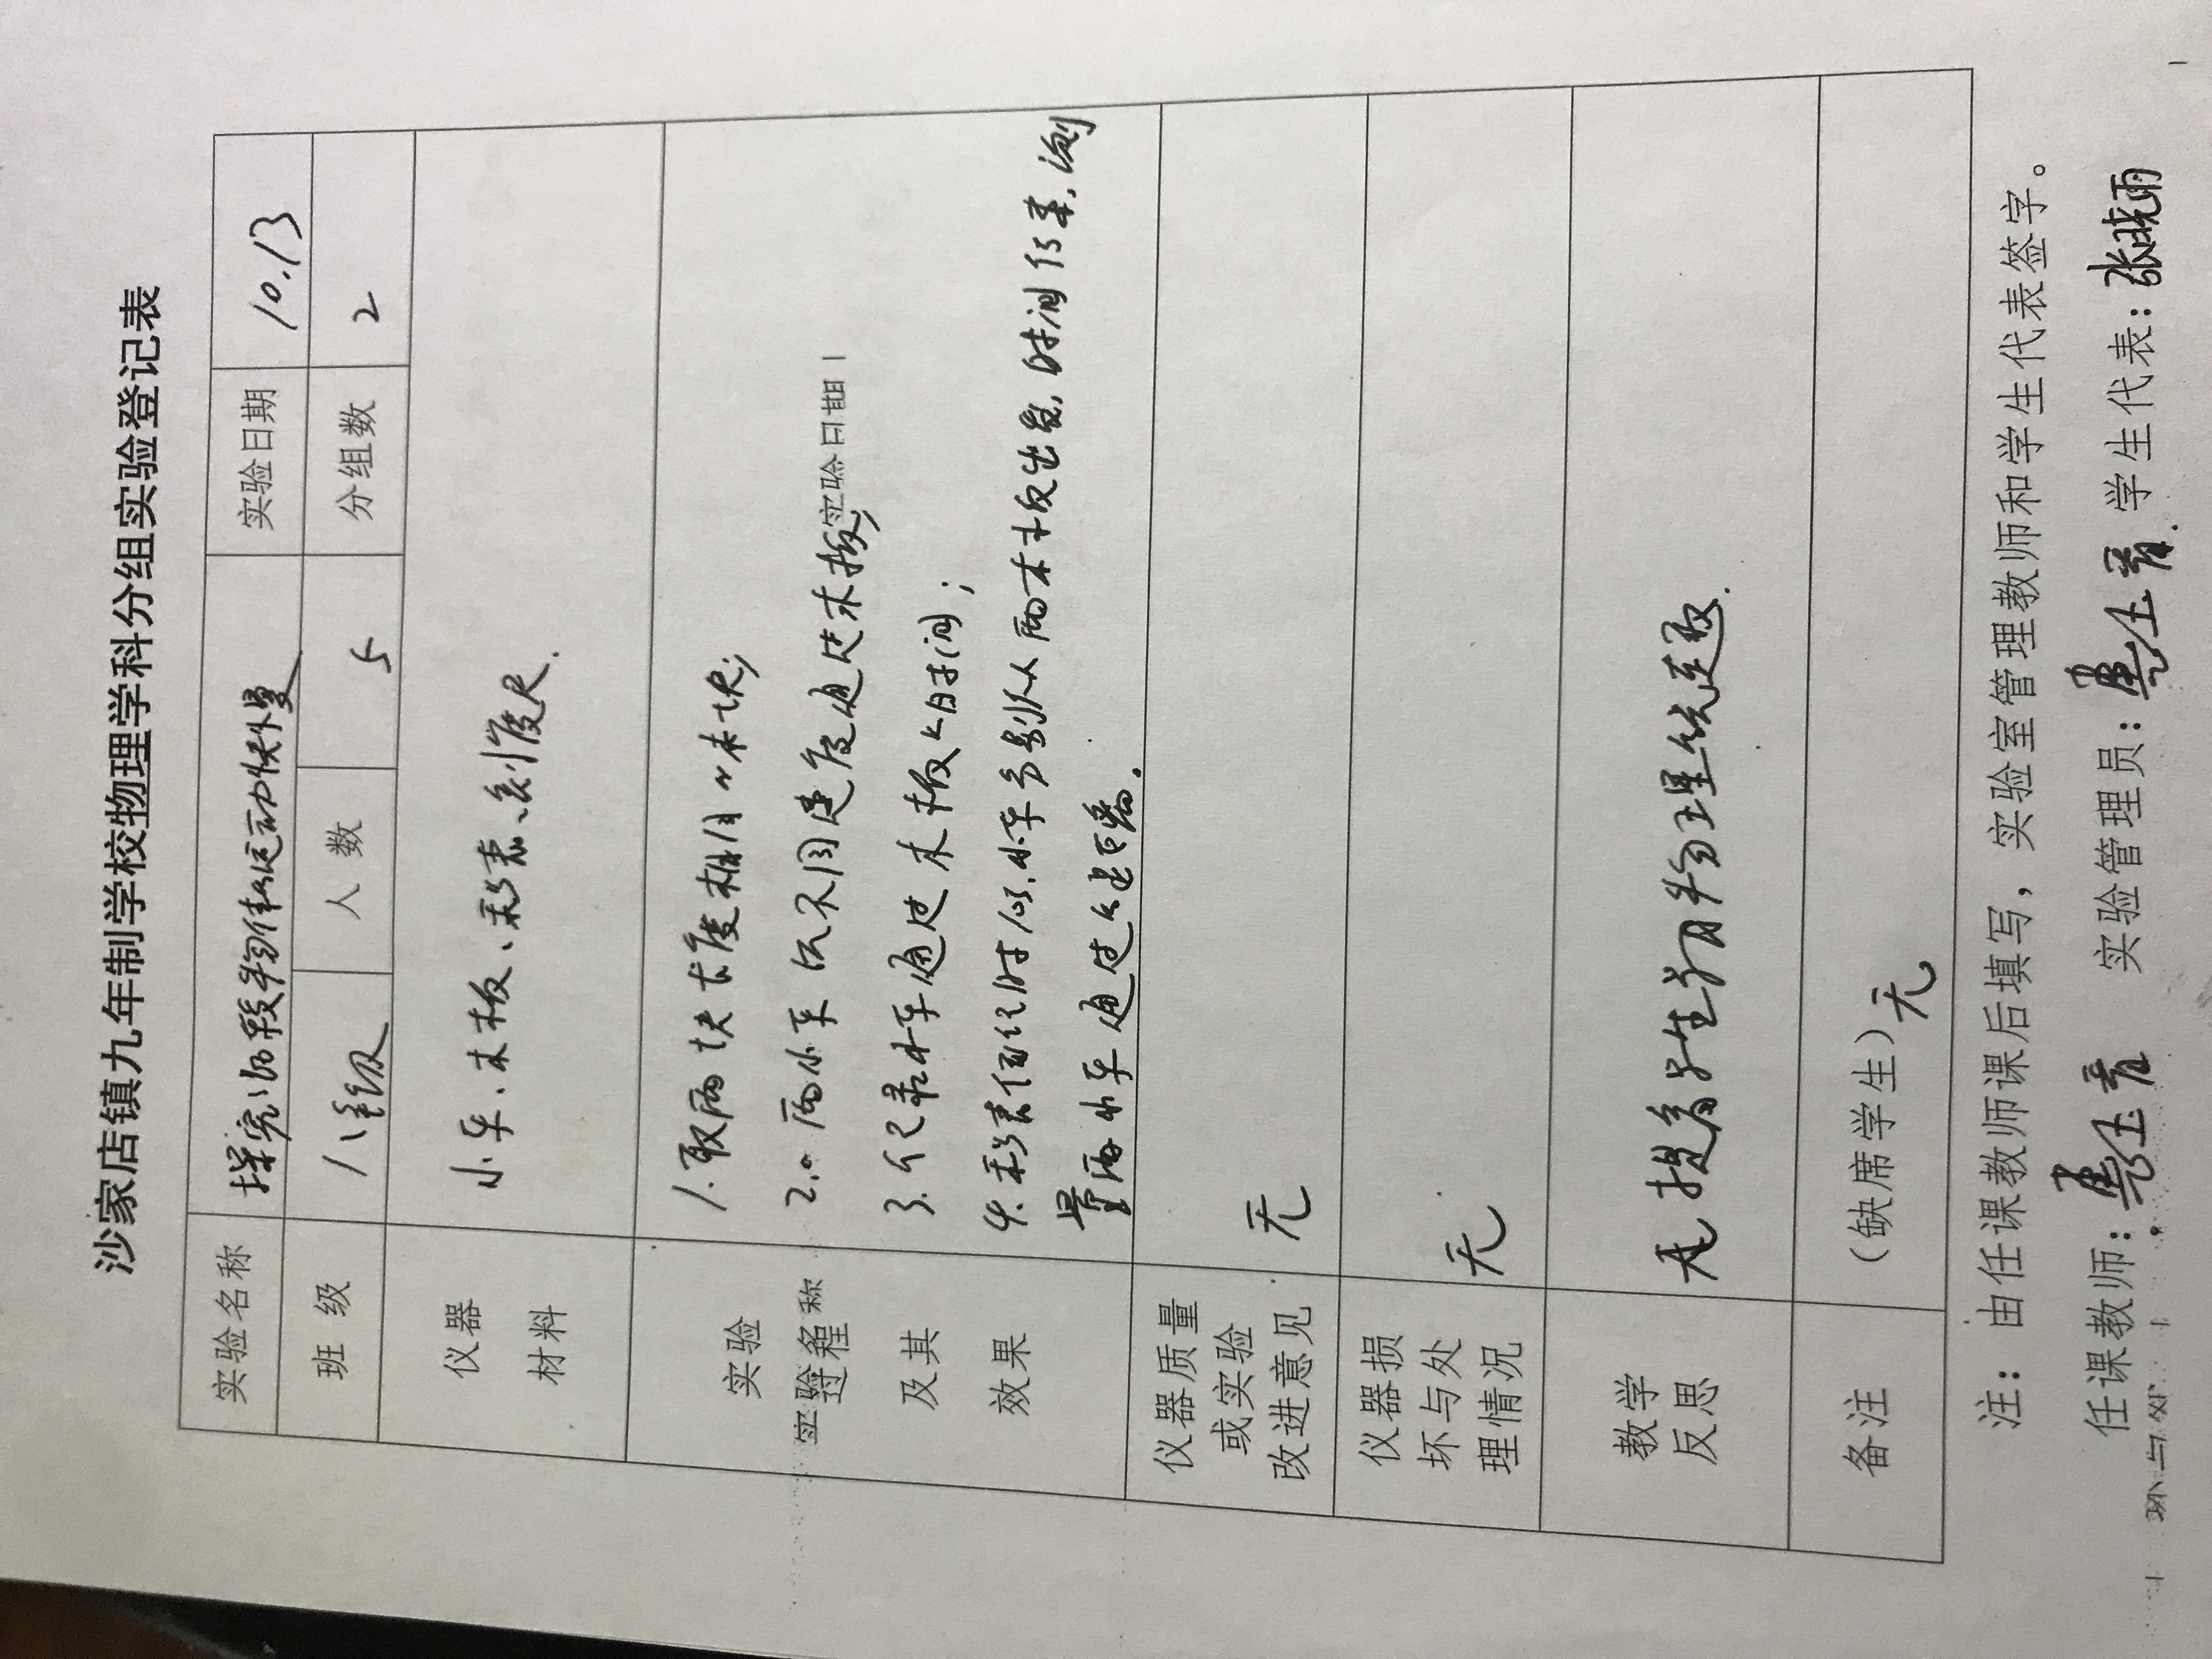 沙家店镇九年制学校物理学科分组实验登记表
实验名称 探究比较物体运动快慢 实验日期 10.13
班 级 八年级 人 数 5 分组数 2
仪器材料 小车、木板、秒表、刻度尺.
实验过程及其效果
1.取两块长度相同 木块;
2. 两小车以不同速度通过木板;
3.记录小车通过木板 时间;
4.秒表 计时 ,小车分别从两木板出发,时间 ,测
量两小车通过 距离.
仪器质量或实验改进意见 无
仪器损坏与处理情况 无
教学反思 无 提 学生 物理
备注 (缺席学生) 无
注:由任课教师课后填写,实验室管理教师和学生代表签字。
任课教师: 实验管理员: 学生代表:张晓雨